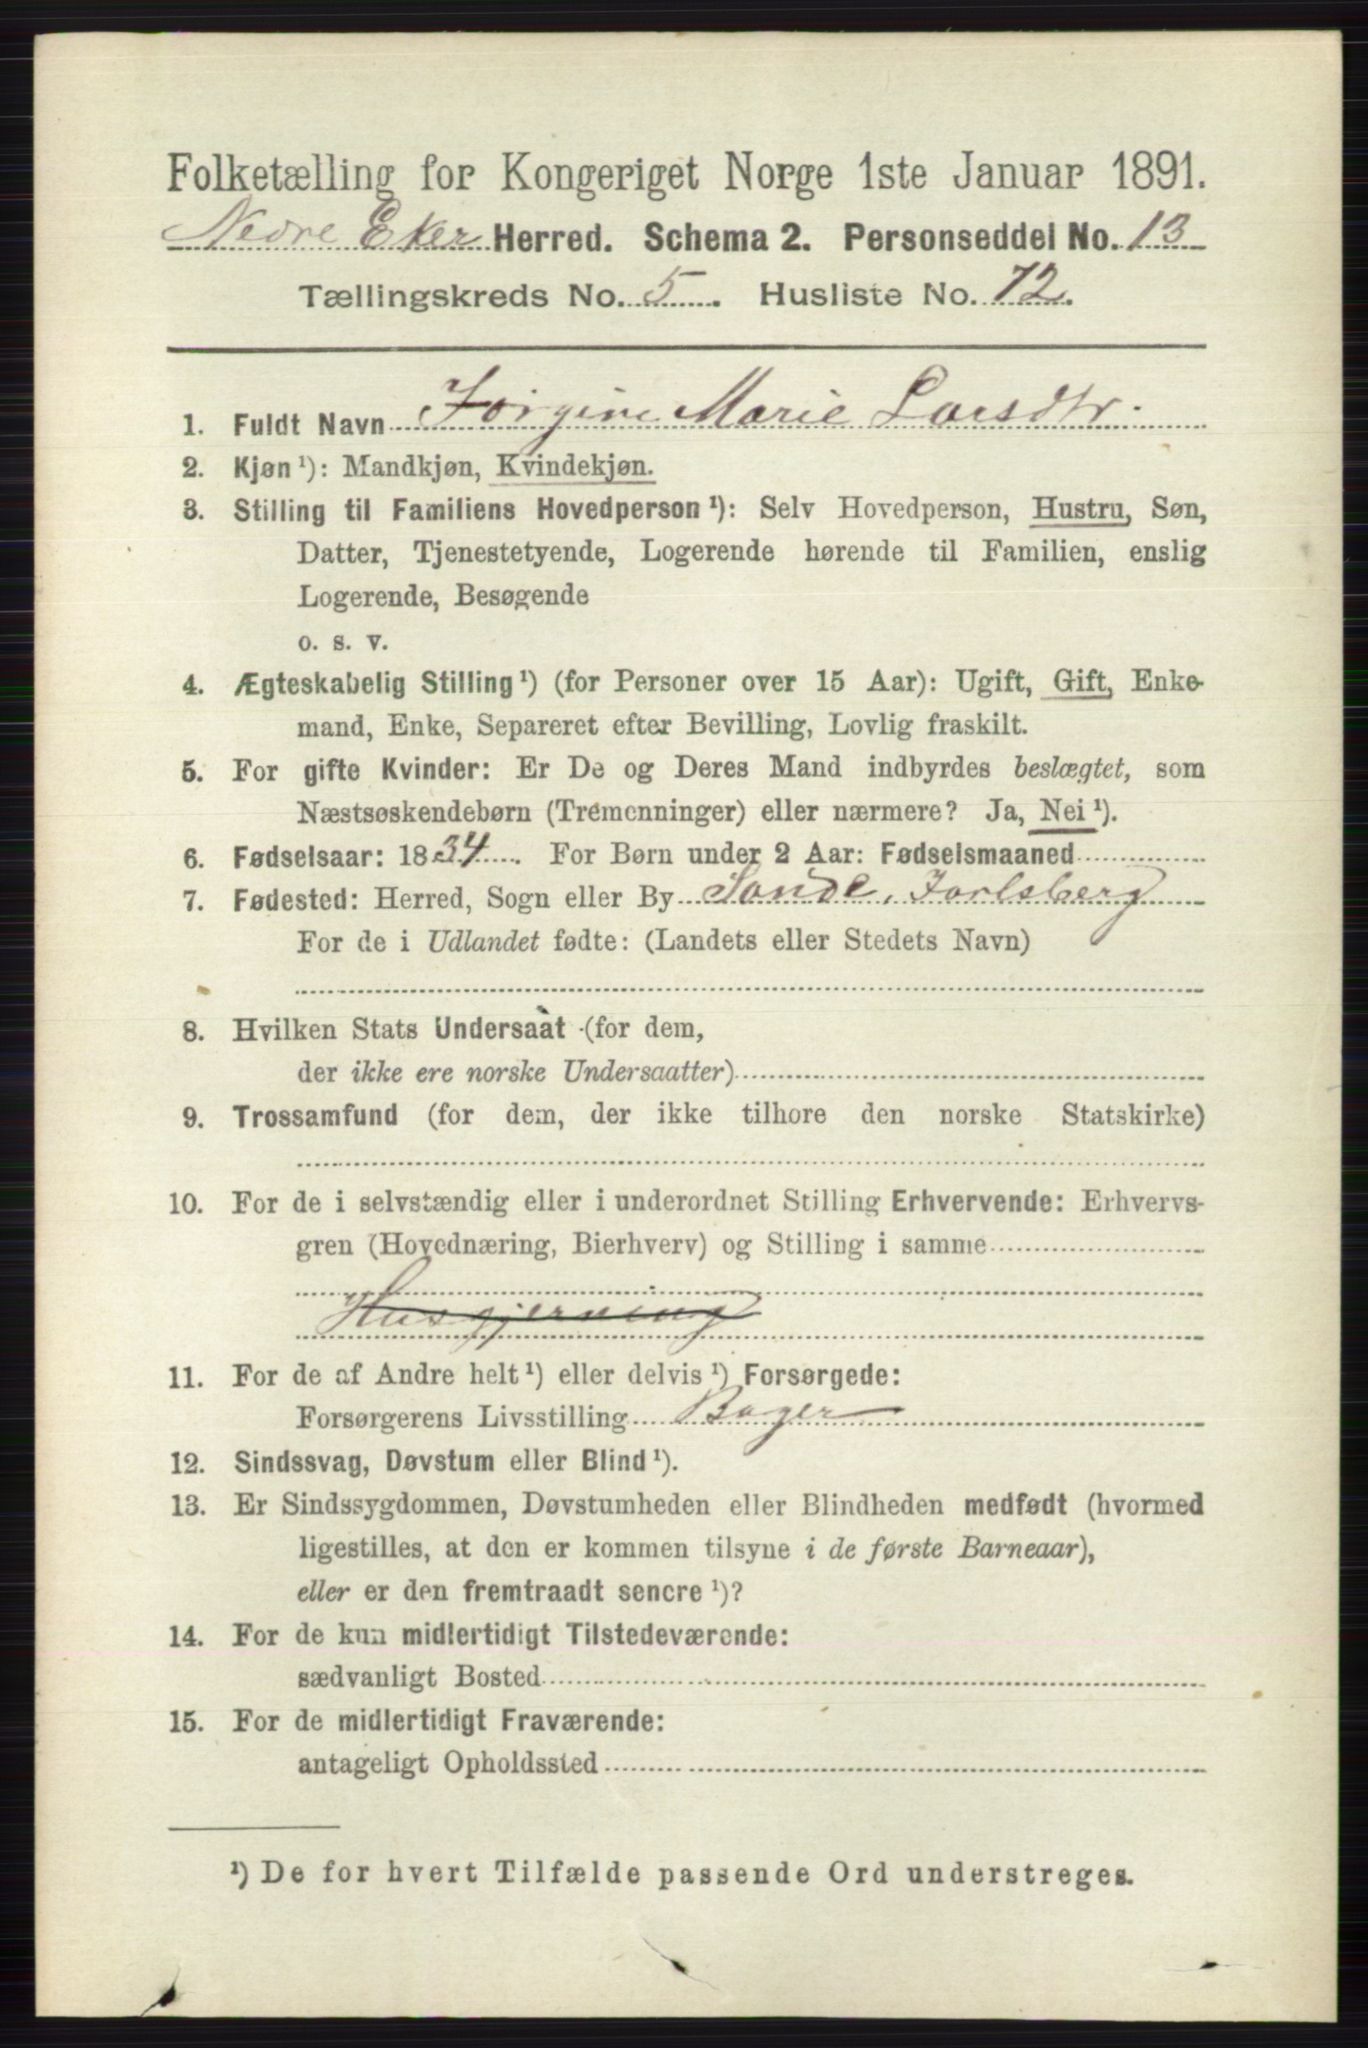 Folketælling for Kongeriget Norge 1ste Januar 1891.
Nedre Eker Herred. Schema 2. Personseddel No. 13
Tællingskreds No. 5. Husliste No. 72.
1. Fuldt Navn Jørgine Marie Larsdtr.
2. Kjøn ¹): Mandkjøn, Kvindekjøn.
3. Stilling til Familiens Hovedperson ¹): Selv Hovedperson, Hustru, Søn,
Datter, Tjenestetyende, Logerende hørende til Familien, enslig
Logerende, Besøgende
o. s. v.
4. Ægteskabelig Stilling ¹) (for Personer over 15 Aar): Ugift, Gift, Enke-
mand, Enke, Separeret efter Bevilling, Lovlig fraskilt.
5. For gifte Kvinder: Er De og Deres Mand indbyrdes beslægtet, som
Næstsøskendebørn (Tremenninger) eller nærmere? Ja, Nei ¹).
6. Fødselsaar: 1834. For Børn under 2 Aar: Fødselsmaaned
7. Fødested: Herred, Sogn eller By Sande, Jarlsberg
For de i Udlandet fødte: (Landets eller Stedets Navn)
8. Hvilken Stats Undersaat (for dem,
der ikke ere norske Undersaatter)
9. Trossamfund (for dem, der ikke tilhøre den norske Statskirke)
10. For de i selvstændig eller i underordnet Stilling Erhvervende: Erhvervs-
gren (Hovednæring, Bierhverv) og Stilling i samme
Husgjerning
11. For de af Andre helt ¹) eller delvis ¹) Forsørgede:
Forsørgerens Livsstilling Bager
12. Sindssvag, Døvstum eller Blind ¹).
13. Er Sindssygdommen, Døvstumheden eller Blindheden medfødt (hvormed
ligestilles, at den er kommen tilsyne i de første Barneaar),
eller er den fremtraadt senere ¹)?
14. For de kun midlertidigt Tilstedeværende:
sædvanligt Bosted
15. For de midlertidigt Fraværende:
antageligt Opholdssted
¹) De for hvert Tilfælde passende Ord understreges.